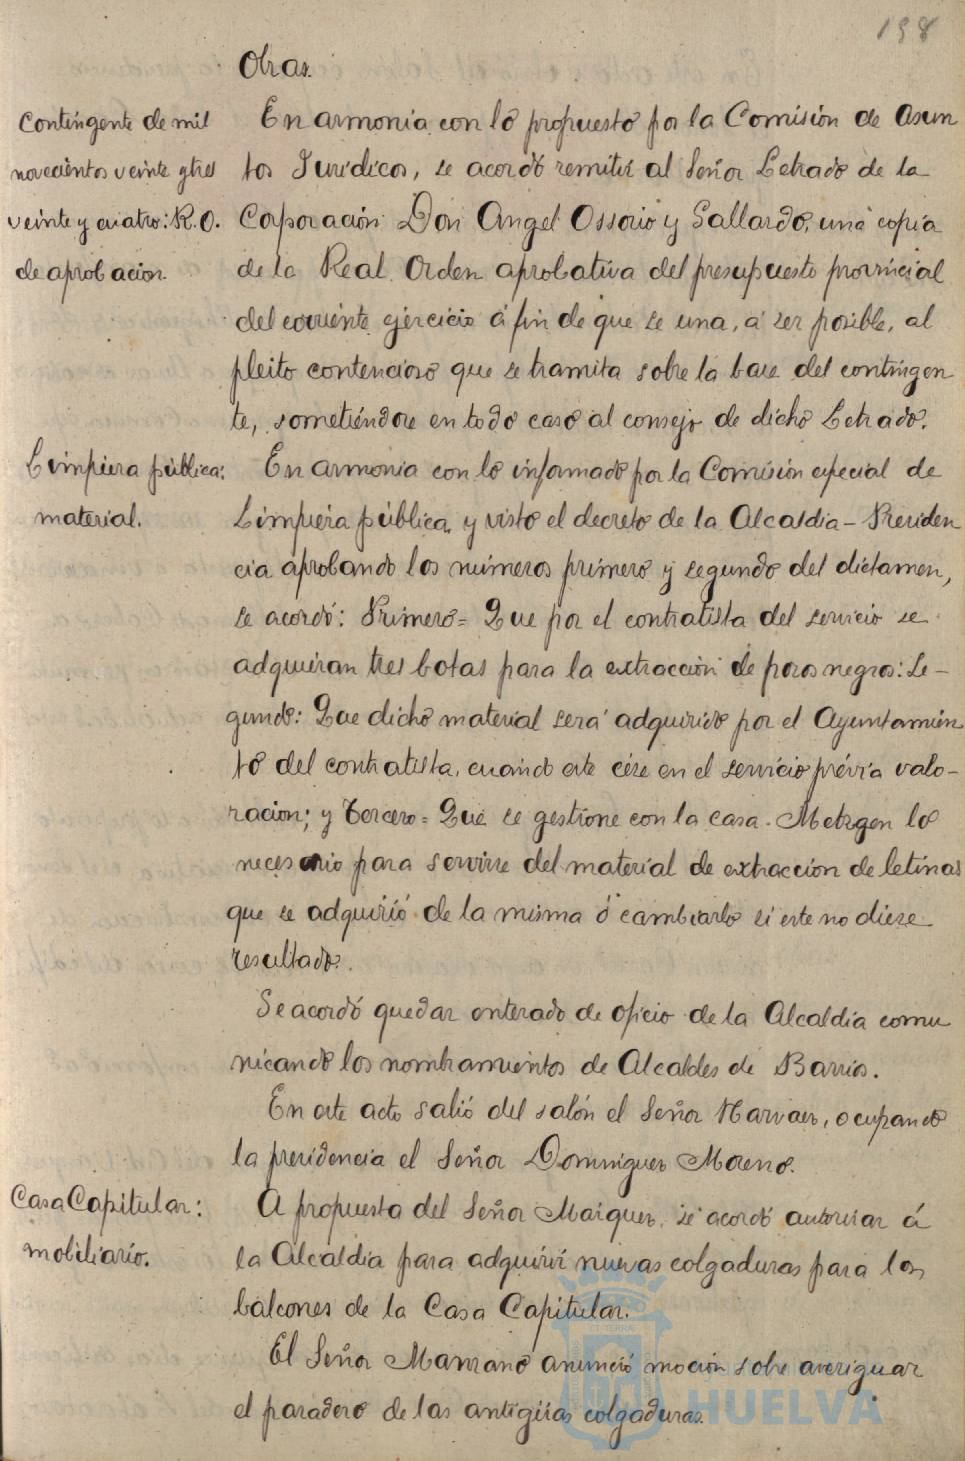 198
Obras.
Contingente de mil
novecientos veinte y tres
veinte y cuatro: R.O.
de aprobacion.
En armonia con lo propuesto por la Comisión de Asun
tos Jurídicos, se acordó remitir al Señor Letrado de la
Corporación Don Angel Ossorio y Gallardo, una copia
de la Real Orden aprobativa del presupuesto provincial
del corriente ejercicio á fin de que se una, á ser posible, al
pleito contencioso que se tramita sobre la base del contingen
te, sometiéndose en todo caso al consejo de dicho Letrado.
Limpieza pública:
material.
En armonia con lo informado por la Comisión especial de
Limpieza pública, y visto el decreto de la Alcaldia-Presiden
cia aprobando los números primero y segundo del dictamen,
se acordó: Primero= Que por el contratista del servicio se
adquieran tres botas para la extracción de pozos negros: Se-
gundo: Que dicho material será adquirido por el Ayuntamien
to del contratista, cuando este cése en el servicio prévia valo-
racion; y Tercero= Que se gestione con la casa Metzgen lo
necesario para servirse del material de extraccion de letinas
que se adquirió de la misma ó cambiarlo si este no diese
resultado.
Se acordó quedar enterado de oficio de la Alcaldia comu
nicando los nombramientos de Alcaldes de Barrios.
En este acto salió del salón el Señor Narvaez, ocupando
la presidencia el Señor Dominguez Moreno.
Casa Capitular:
mobiliario.
A propuesta del Señor Maiquez, se acordó autorizar á
la Alcaldia para adquirir nuevas colgaduras para los
balcones de la Casa Capitular.
El Señor Manzano anunció moción sobre averiguar
el paradero de las antigüas colgaduras.
HUELVA